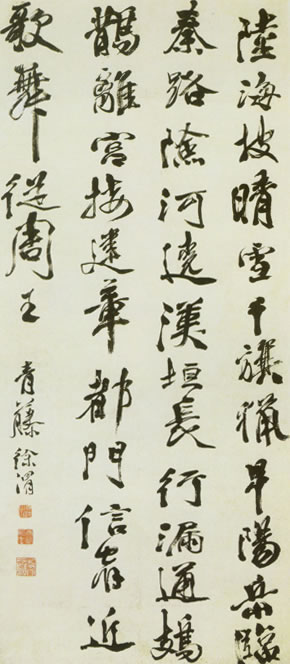 陸海披晴雪千旗獵早陽岳臨
秦路險河遶漢垣長行漏通鳷
鵲離宮接建章都門信宵近
歌舞從周王
青藤徐渭